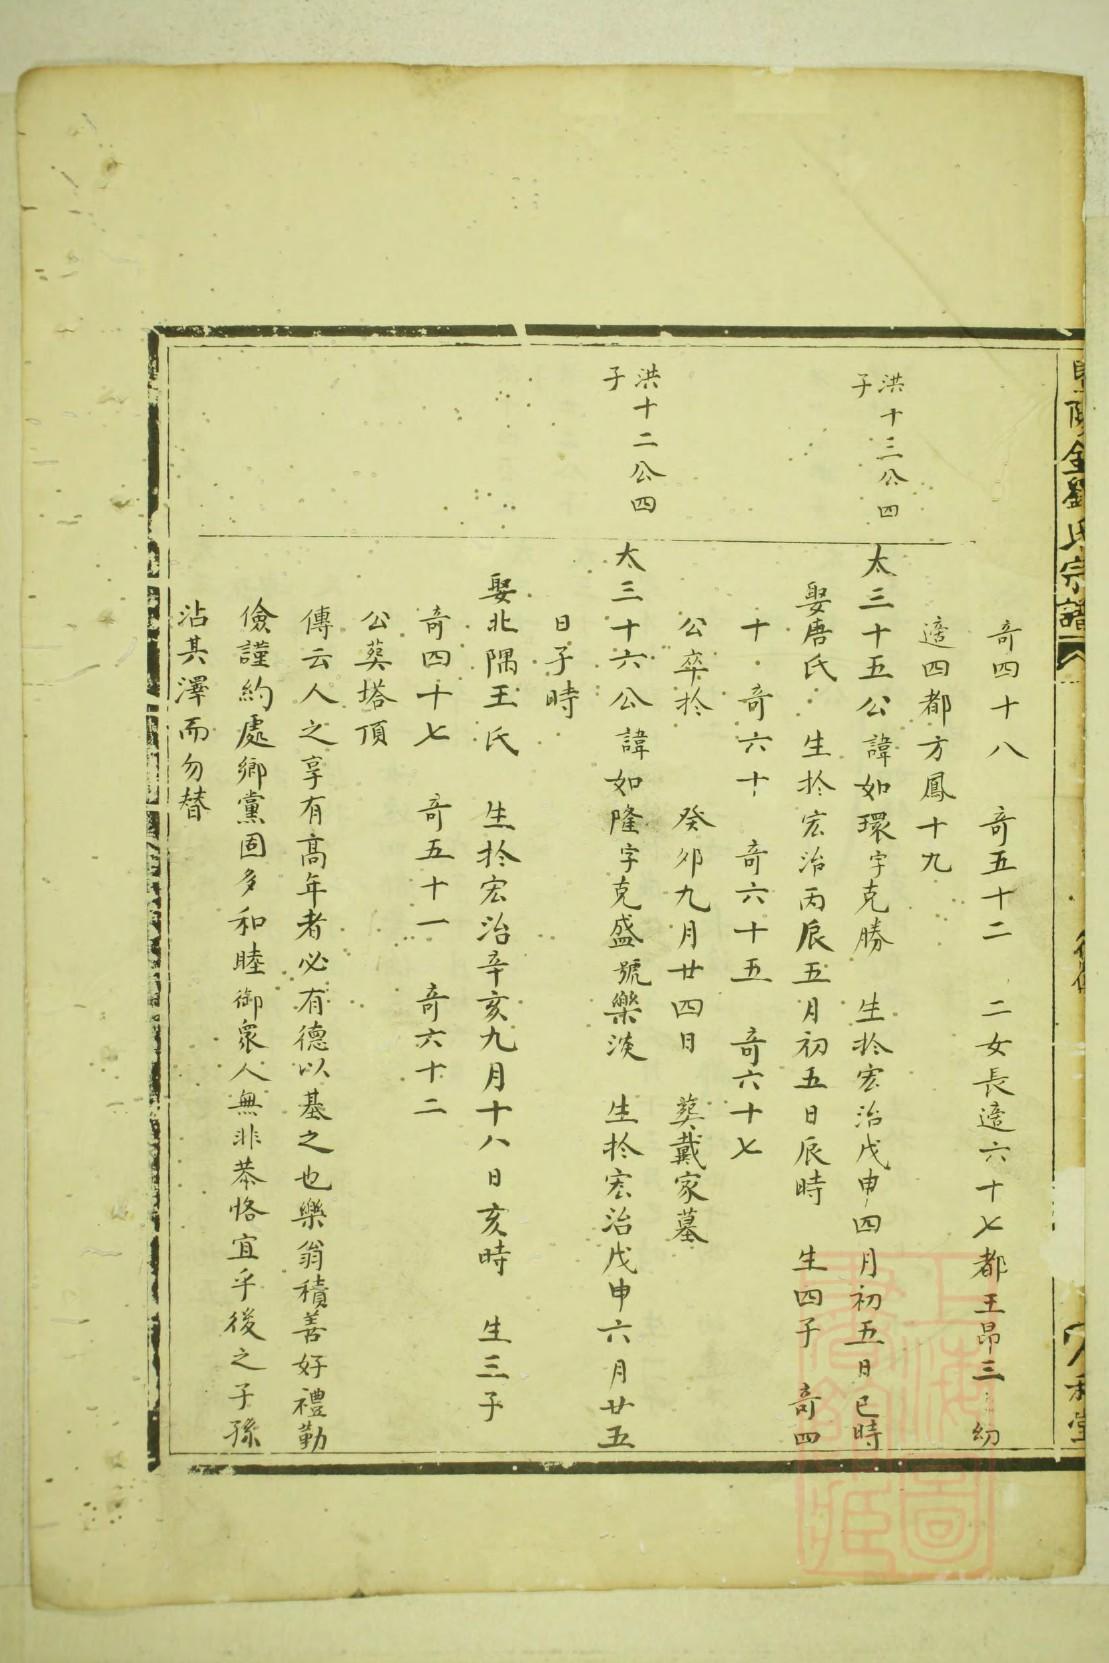 暨陽金劉氏宗譜
奇四十八 奇五十二 二女長適六十七都王昂三 幼
適四都方鳳十九
洪十三公四
子
太三十五公諱如環字克勝 生於宏治戊申四月初五日巳時
娶唐氏 生於宏治丙辰五月初五日辰時 生四子 奇四
十 奇六十 奇六十五 奇六十七
公卒於 癸卯九月廿四日 葬戴家墓
洪十二公四
子
太三十六公諱如隆字克盛號樂淡 生於宏治戊申六月廿五
日子時
娶北隅王氏 生於宏治辛亥九月十八日亥時 生三子
奇四十七 奇五十一 奇六十二
公葬塔頂
傳云人之享有高年者必有德以基之也樂翁積善好禮勤
儉謹約處鄉黨固多和睦御衆人無非恭恪宜乎後之子孫
沾其澤而勿替